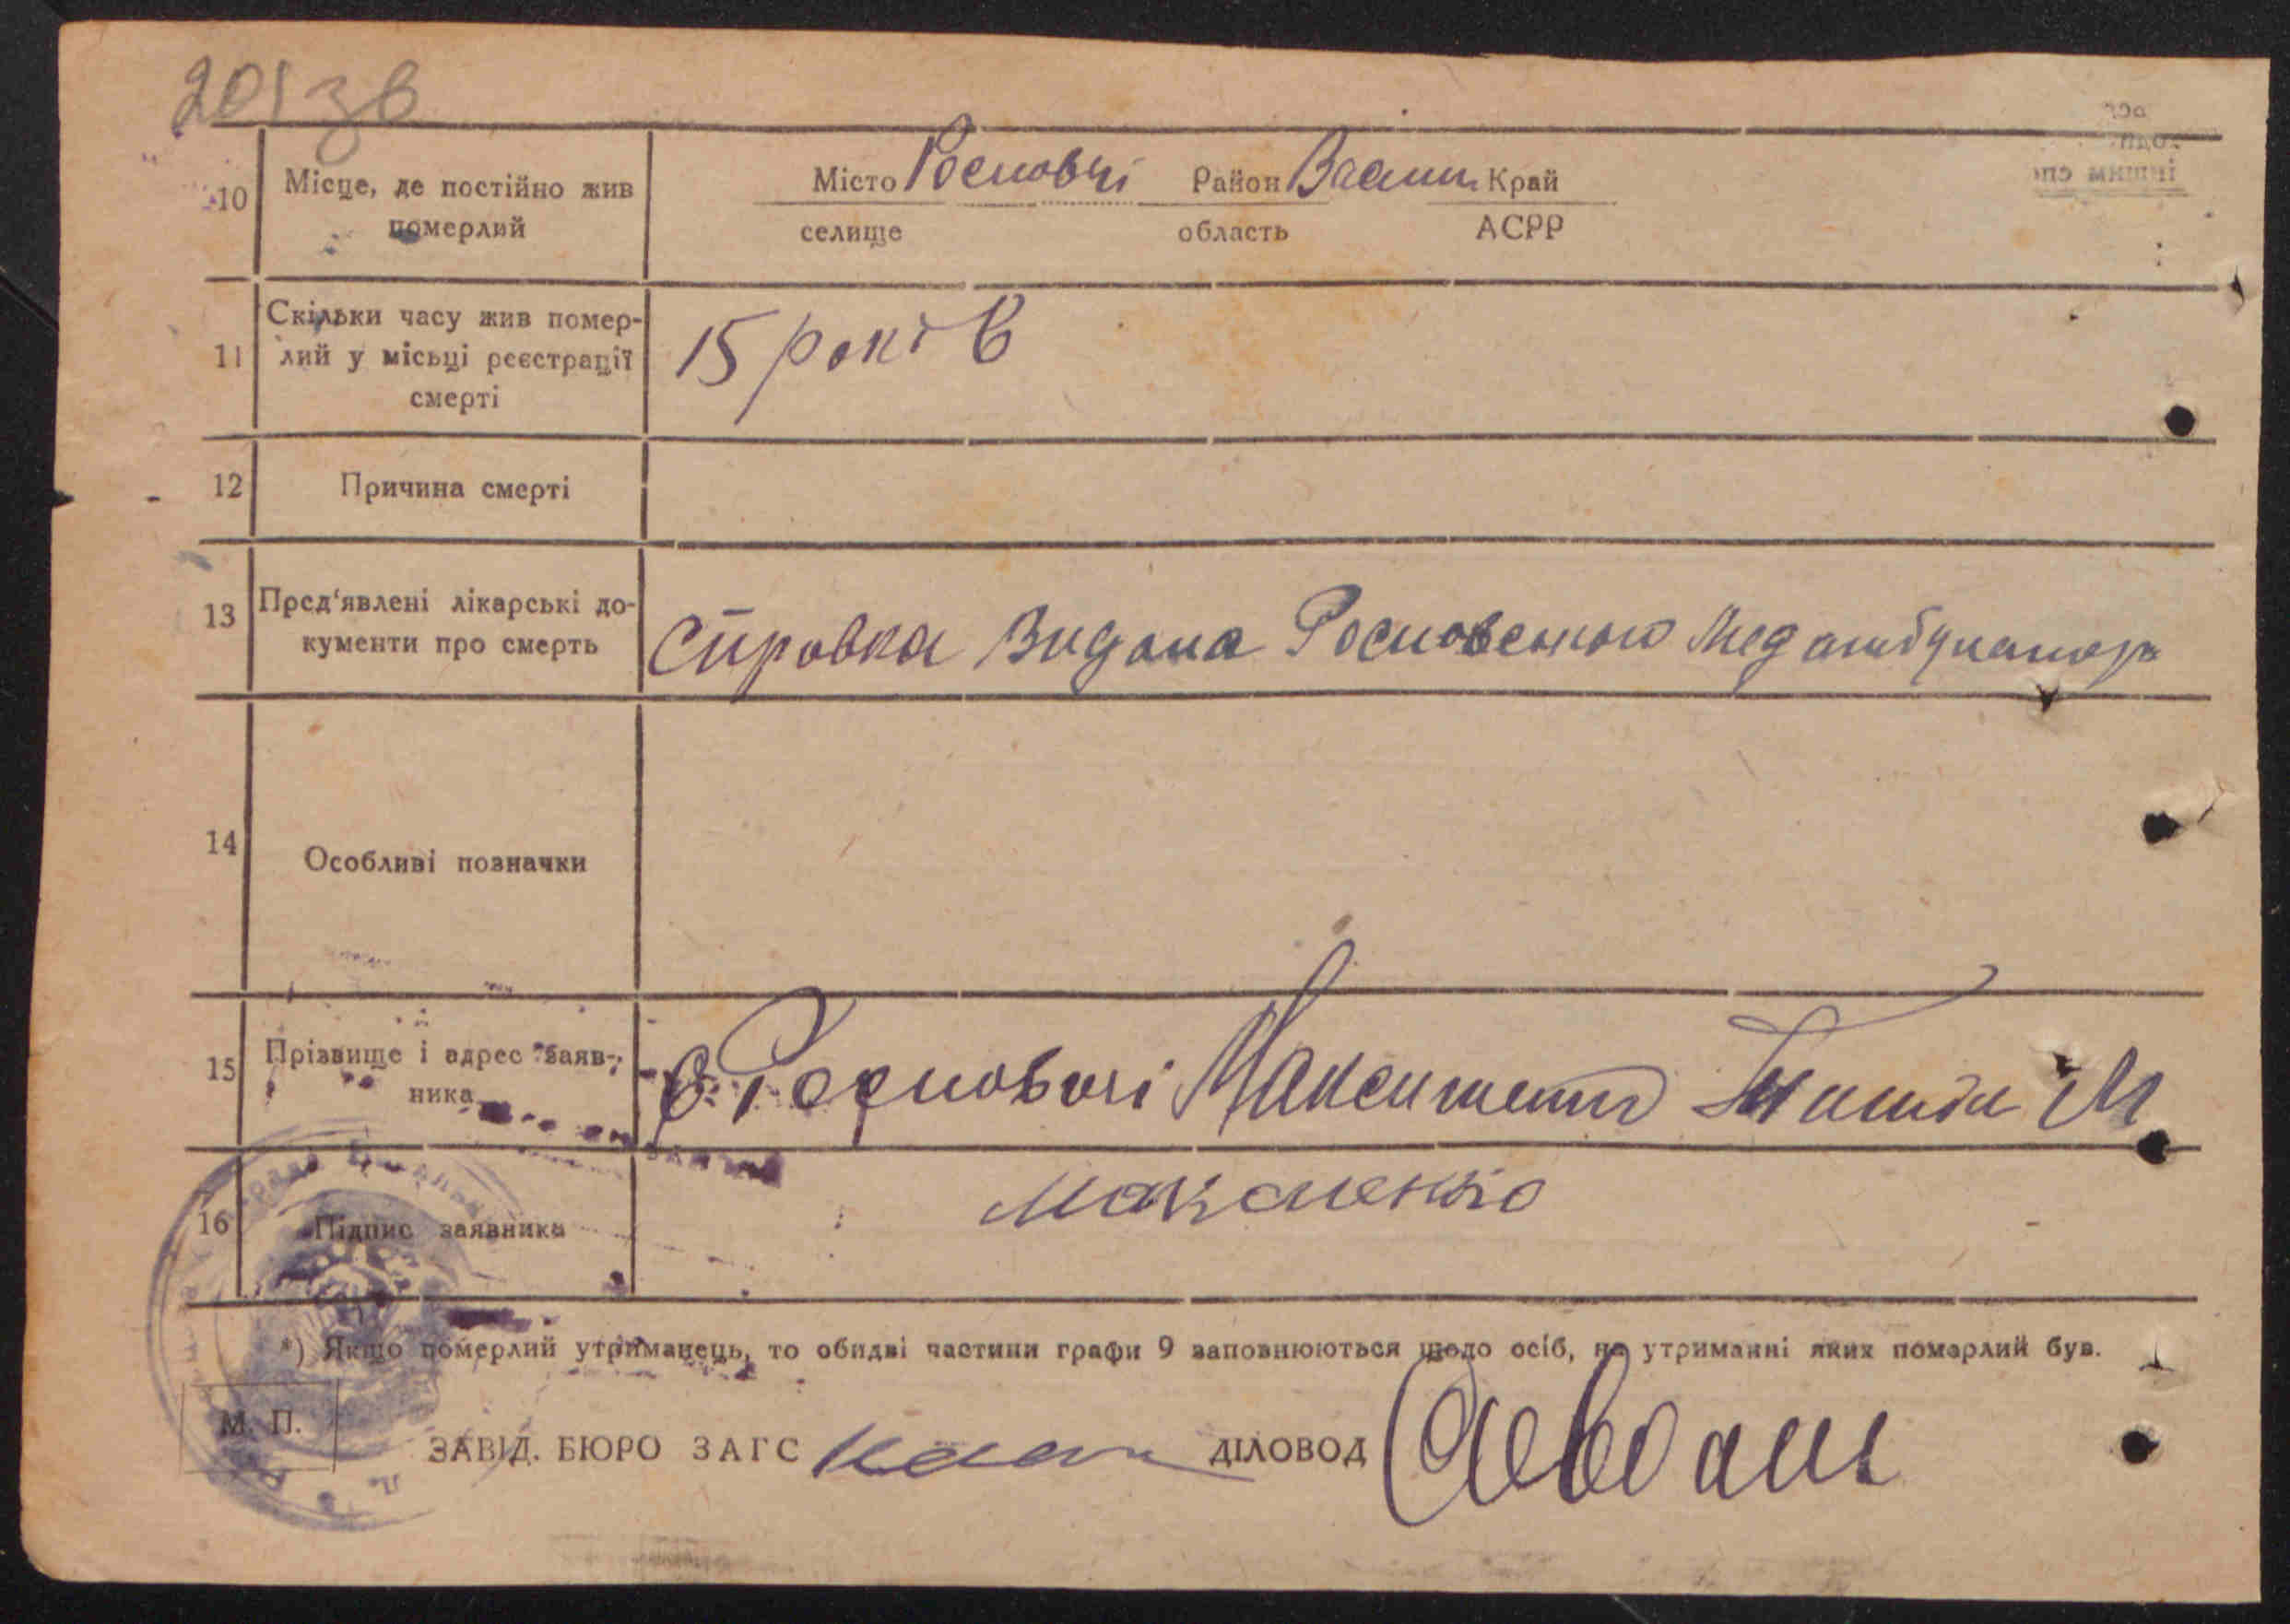 201зв
10 Місце, де постійно жив померлий
Місто Росновці Район Васил. Край
селище область АСРР
11 Скільки часу жив помер-
лий у місьці реєстрації
смерті
15 років
12 Причина смерті
13 Пред'явлені лікарські до-
кументи про смерть
Справка Видана Росновською Медамбулатор
14 Особливі позначки
15 Прізвище і адрес заяв-
ника
с. Росновці Максименко М
16 Підпис заявника
Максменко
*) Якщо померлий утриманець, то обидві частини графи 9 заповнюються щодо осіб, на утриманні яких померлий був.
М. П.
ЗАВІД. БЮРО ЗАГС ДІЛОВОД